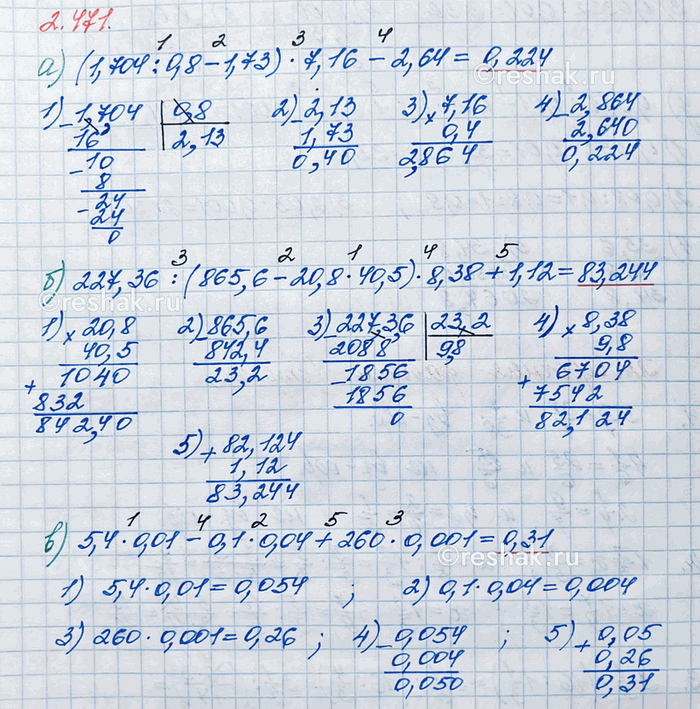 2.471.
1 2 3 4
а) (1,704 : 0,8 − 1,73) · 7,16 − 2,64 = 0,224
1) − 1,704 | 0,8 2) − 2,13 3) × 7,16 4) − 2,864
16 | 2,13 1,73 0,4 2,640
− 10 0,40 2,864 0,224
8
− 24
24
0
3 2 1 4 5
б) 227,36 : (865,6 − 20,8 · 40,5) · 8,38 + 1,12 = 83,244
1) × 20,8 2) − 865,6 3) − 227,36 | 23,2 4) × 8,38
40,5 842,4 2088 | 9,8 9,8
+ 1040 23,2 − 1856 + 6704
832 1856 7542
842,40 0 82,124
5) + 82,124
1,12
83,244
1 4 2 5 3
в) 5,4 · 0,01 − 0,1 · 0,04 + 260 · 0,001 = 0,31
1) 5,4 · 0,01 = 0,054 ; 2) 0,1 · 0,04 = 0,004
3) 260 · 0,001 = 0,26 ; 4) − 0,054 ; 5) + 0,05
0,004 0,26
0,050 0,31
©reshak.ru
©reshak.ru